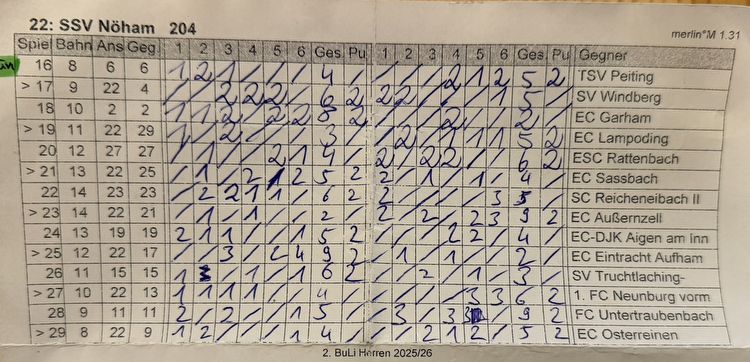 22: SSV Nöham 204
merlin°M 1.31
Spiel Bahn Ans Geg 1 2 3 4 5 6 Ges Pu 1 2 3 4 5 6 Ges Pu Gegner
16 8 6 6 1 2 1 / / / 4 / / / / 2 1 2 5 2 TSV Peiting
> 17 9 22 4 / / 2 2 2 / 6 2 2 2 / / / 1 5 / SV Windberg
18 10 2 2 1 1 2 / 2 2 8 2 / / / 2 / / 2 / EC Garham
> 19 11 22 29 1 / 2 / / / 3 / / 2 / 1 1 1 5 2 EC Lampoding
20 12 27 27 / 1 / / 2 1 4 / 2 / 2 2 / / 6 2 ESC Rattenbach
> 21 13 22 25 / 1 / 2 / 2 5 2 2 / 1 / 1 / 4 / EC Sassbach
22 14 23 23 / 2 2 1 1 / 6 2 2 / / / / 3 5 / SC Reicheneibach II
> 23 14 22 21 / 1 / 1 / / 2 / 2 / 2 / 2 3 9 2 EC Außernzell
24 13 19 19 2 1 1 / / 1 5 2 / / / 2 2 / 4 / EC-DJK Aigen am Inn
> 25 12 22 17 / / 3 / 2 4 9 2 / 1 / 1 / / 2 / EC Eintracht Aufham
26 11 15 15 1 3 / 1 / 1 6 2 / / 2 / 1 / 3 / SV Truchtlaching-
> 27 10 22 13 1 1 1 1 / / 4 / / / / / 3 3 6 2 1. FC Neunburg vorm
28 9 11 11 2 / 2 / / 1 5 / / 3 / 3 3 / 9 2 FC Untertraubenbach
> 29 8 22 9 1 2 / / / 1 4 / / / 2 1 2 / 5 2 EC Osterreinen
2. BuLi Herren 2025/26